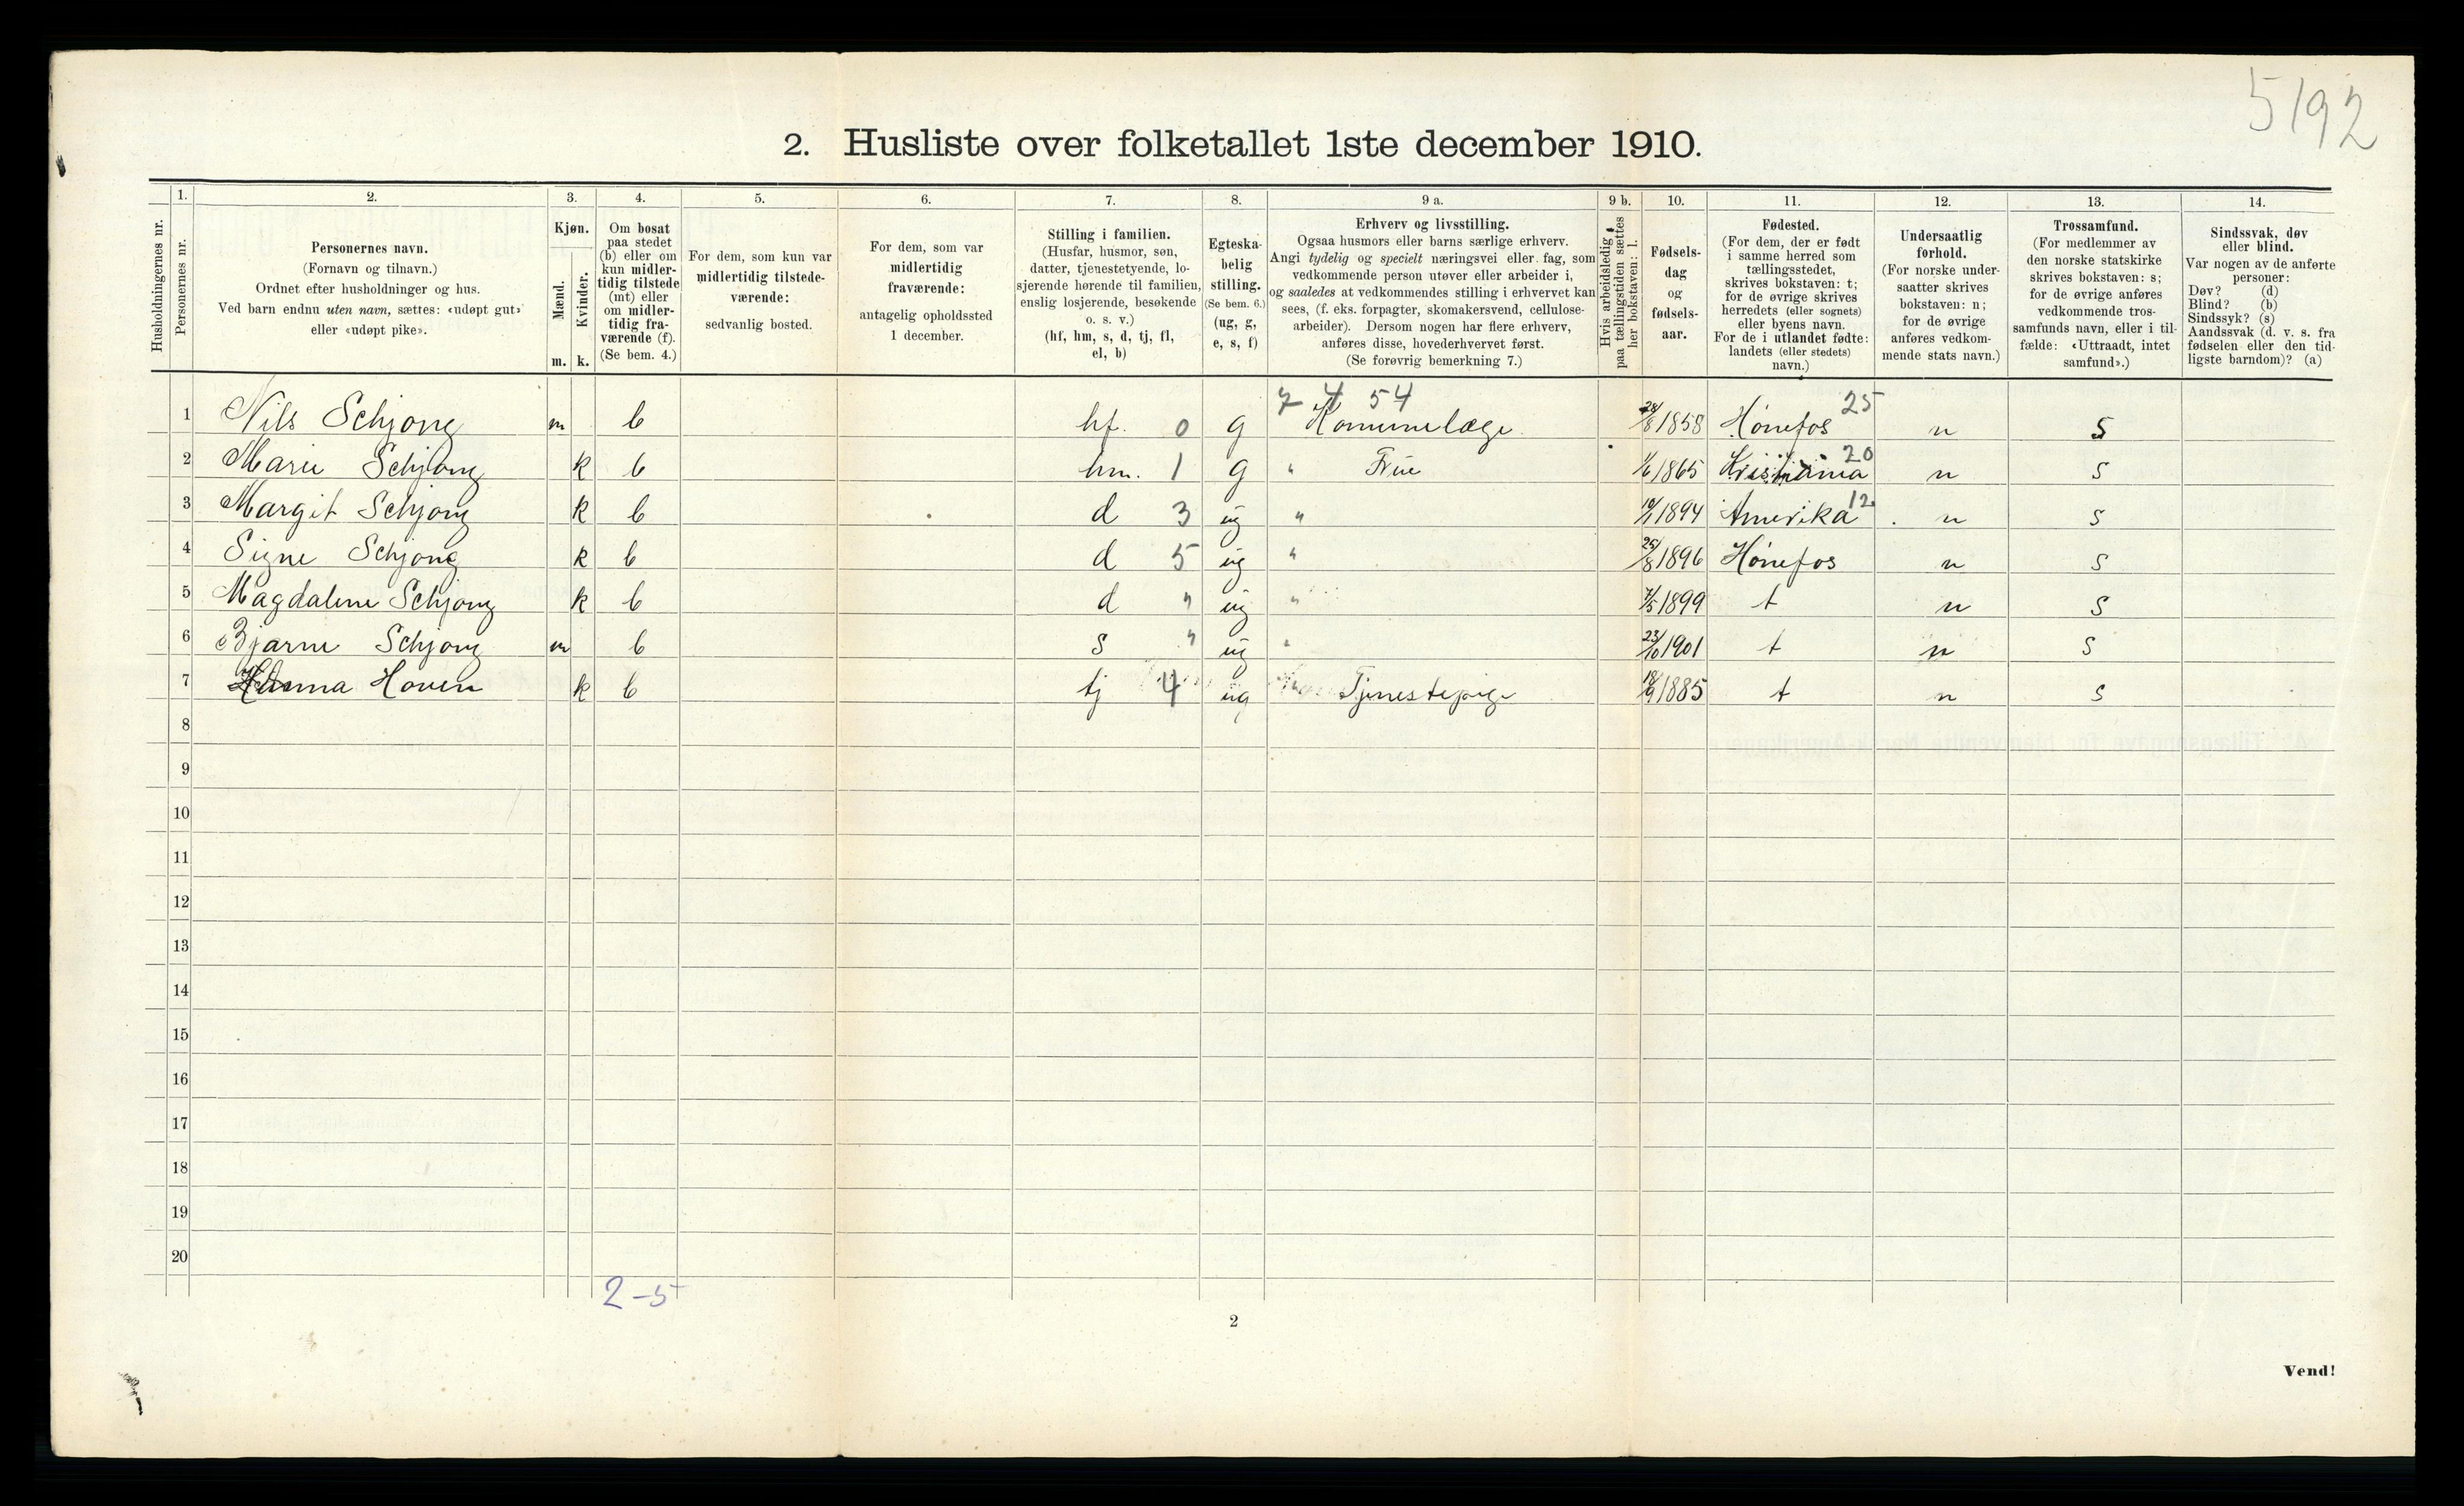 5192
2. Husliste over folketallet 1ste december 1910.
Husholdningernes nr.
1.
Personernes nr.
2.
Personernes navn.
(Fornavn og tilnavn.)
Ordnet efter husholdninger og hus.
Ved barn endnu uten navn, sættes: «udøpt gut»
eller «udøpt pike».
3.
Kjøn.
Mænd.
m.
Kvinder.
k.
4.
Om bosat
paa stedet
(b) eller om
kun midler-
tidig tilstede
(mt) eller
om midler-
tidig fra-
værende (f).
(Se bem. 4.)
5.
For dem, som kun var
midlertidig tilstede-
værende:
sedvanlig bosted.
6.
For dem, som var
midlertidig
fraværende:
antagelig opholdssted
1 december.
7.
Stilling i familien.
(Husfar, husmor, søn,
datter, tjenestetyende, lo-
sjerende hørende til familien,
enslig losjerende, besøkende
o. s. v.)
(hf, hm, s, d, tj, fl,
el, b)
8.
Egteska-
belig
stilling.
(Se bem. 6.)
(ug, g,
e, s, f)
9 a.
Erhverv og livsstilling.
Ogsaa husmors eller barns særlige erhverv.
Angi tydelig og specielt næringsvei eller fag, som
vedkommende person utøver eller arbeider i,
og saaledes at vedkommendes stilling i erhvervet kan
sees, (f. eks. forpagter, skomakersvend, cellulose-
arbeider). Dersom nogen har flere erhverv,
anføres disse, hovederhvervet først.
(Se forøvrig bemerkning 7.)
9 b.
Hvis arbeidsledig
paa tællingstiden sættes
her bokstaven: l.
10.
Fødsels-
dag
og
fødsels-
aar.
11.
Fødested.
(For dem, der er født
i samme herred som
tællingsstedet,
skrives bokstaven: t;
for de øvrige skrives
herredets (eller sognets)
eller byens navn.
For de i utlandet fødte:
landets (eller stedets)
navn.)
12.
Undersaatlig
forhold.
(For norske under-
saatter skrives
bokstaven: n;
for de øvrige
anføres vedkom-
mende stats navn.)
13.
Trossamfund.
(For medlemmer av
den norske statskirke
skrives bokstaven: s;
for de øvrige anføres
vedkommende tros-
samfunds navn, eller i til-
fælde: «Uttraadt, intet
samfund».)
14.
Sindssvak, døv
eller blind.
Var nogen av de anførte
personer:
Døv? (d)
Blind? (b)
Sindssyk? (s)
Aandssvak (d. v. s. fra
fødselen eller den tid-
ligste barndom)? (a)
7 4 54 25
1 Nils Schjong m b hf. 0 g Komunelæge 28/8 1858 Hønefos n S
2 Marie Schjong k b hm. 1 g " Frue 1/6 1865 Kristiania 20 n S
3 Margit Schjong k b d 3 ug " 1894 Amerika 12 n S
4 Signe Schjong k b d 5 ug " 25/8 1896 Hønefos n S
5 Magdalene Schjong k b d " ug " 7/5 1899 t n S
6 Bjarne Schjong m b s " ug " 23/10 1901 t n S
7 Hanna Hoven k b tj 4 ug Tjenestepige 18/9 1885 t n S
8
9
10
11
12
13
14
15
16
17
18
19
20
2-5
2
Vend!